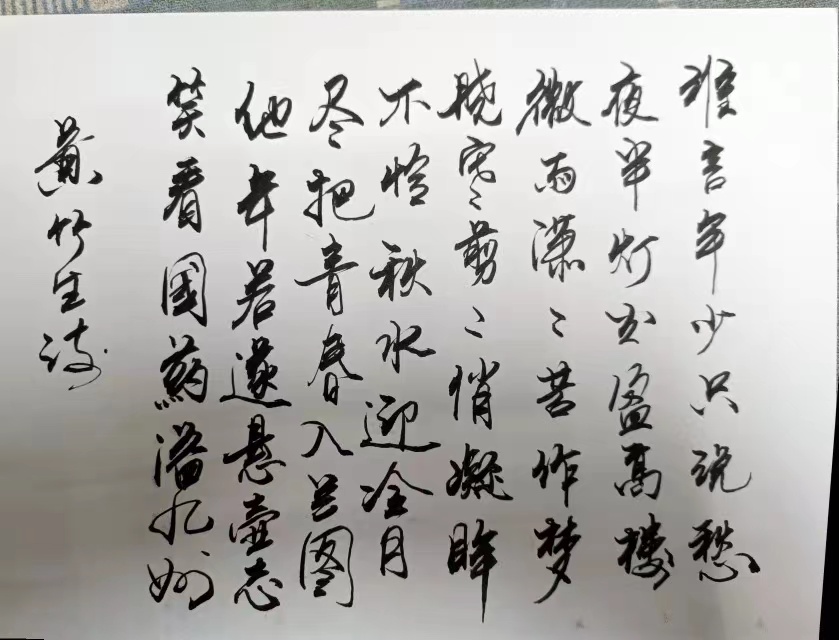 谁言年少只说愁
夜半灯火盈高楼
微雨潇潇苦作梦
晓寒剪剪悄凝眸
不怜秋水迎冷月
尽把青春入兰图
他年若遂悬壶志
笑看國药溢九州
黄竹生诗